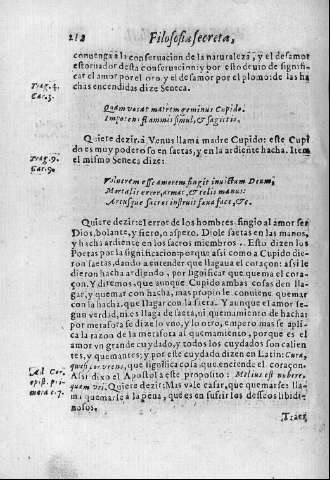 212 Filosofia secreta,
conuenga à la conseruacion de la naturaleza, y el desamor
estoruador desta conseruacion: y por esto deuio de signifi-
car el amor por el oro, y el desamor por el plomo: de las ha
Trag. 4. chas encendidas dize Seneca.
Car. 3.
Quam vocat matrem geminus Cupido.
Impotens flammis simul, & sagittis.
Quiere dezir, à Venus llama madre Cupido: este Cupi
do es muy poderoso en saetas, y en la ardiente hacha. Item
Trag. 9. el mismo Seneca dize:
Car. 9.
Volucrem esse amorem fingit inuictum Deum,
Mortalis error, armat, & telis manus:
Arcusque sacros instruit sæua face, &c.
Quiere dezir: el error de los hombres fingio al amor ser
Dios, bolante, y fiero, o aspero. Diole saetas en las manos,
y hacha ardiente en los sacros miembros. Esto dizen los
Poetas por la significacion: porque assi como a Cupido die
ron saetas, dando a entender que llagaua el coraçon: assi le
dieron hacha ardiendo, por significar que quema el cora-
çon. Y diremos, que aunque Cupido ambas cosas den lla-
gar, y quemar con hacha, mas propio le conuiene quemar
con la hacha, que llagar con la saeta. Y aunque el amor se-
gun verdad, ni es llaga de saeta, ni quemamiento de hachas
por metafora se dize lo vno, y lo otro, empero mas se apli-
ca la razon de la metafora al quemamiento, porque es el
amor vn grande cuydado, y todos los cuydados son calien
tes, y quemantes: y por este cuydado dizen en Latin: Cura,
que significa cosa que enciende el coraçon.
Ad Cor. Assi dixo el Apostol a este proposito: Melius est nubere,
epist. pri- quam vri. Quiere dezir: Mas vale casar, que quemarse: lla-
ma c. 7. ma quemarse à la pena, que es en sufrir los desseos libidi-
nosos.